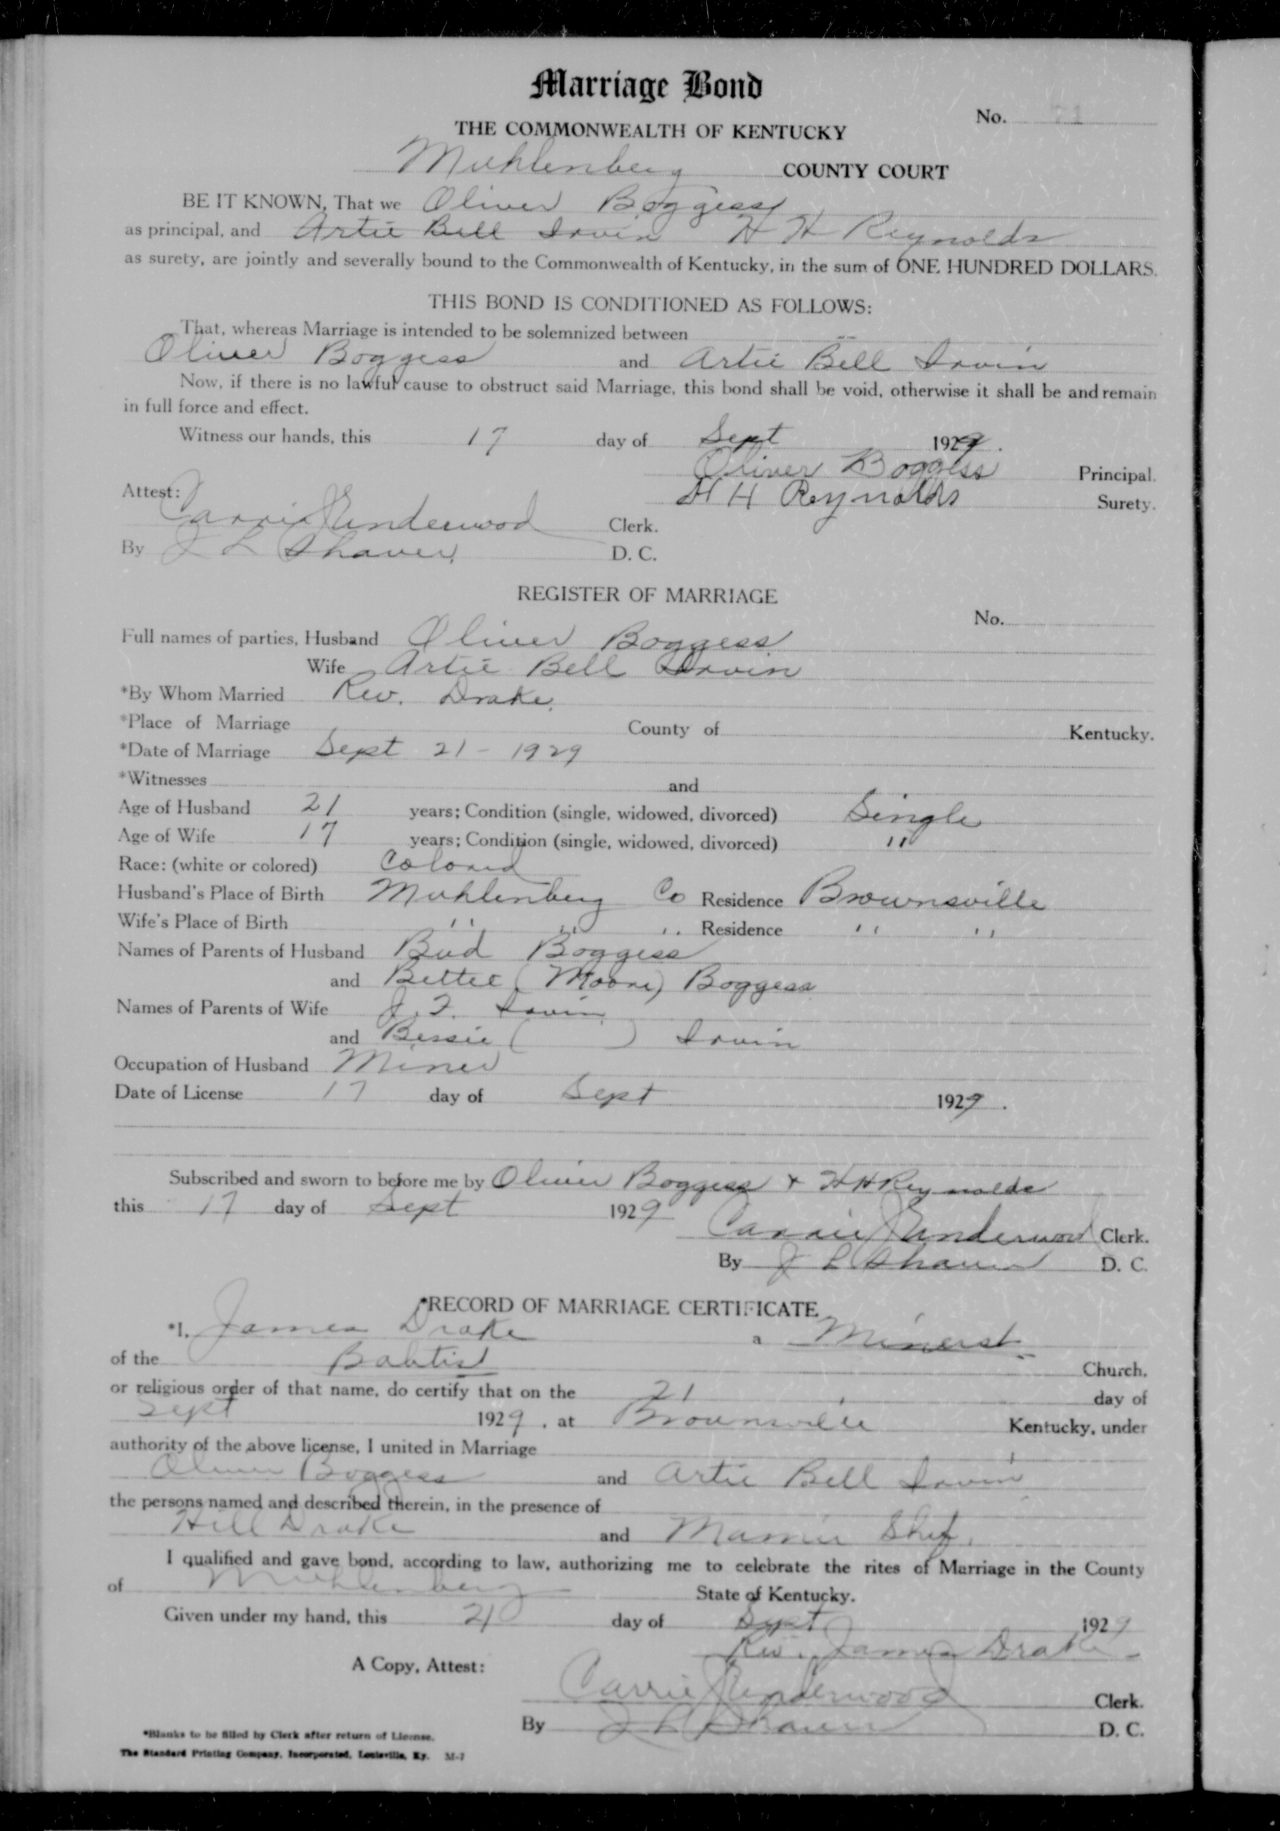 Marriage Bond
No. 71
THE COMMONWEALTH OF KENTUCKY
Muhlenberg COUNTY COURT
BE IT KNOWN, That we Oliver Boggess
as principal, and Artie Bell Irvin H H Reynolds
as surety, are jointly and severally bound to the Commonwealth of Kentucky, in the sum of ONE HUNDRED DOLLARS.
THIS BOND IS CONDITIONED AS FOLLOWS:
That, whereas Marriage is intended to be solemnized between
Oliver Boggess and Artie Bell Irvin
Now, if there is no lawful cause to obstruct said Marriage, this bond shall be void, otherwise it shall be and remain
in full force and effect.
Witness our hands, this 17 day of Sept 1929.
Oliver Boggess Principal.
H H Reynolds Surety.
Attest:
Carrie Underwood Clerk.
By J L Shaver D. C.
REGISTER OF MARRIAGE
No.
Full names of parties, Husband Oliver Boggess
Wife Artie Bell Irvin
*By Whom Married Rev. Drake.
*Place of Marriage County of Kentucky.
*Date of Marriage Sept 21 - 1929
*Witnesses and
Age of Husband 21 years; Condition (single, widowed, divorced) Single
Age of Wife 17 years; Condition (single, widowed, divorced) "
Race: (white or colored) Colored
Husband's Place of Birth Muhlenberg Co Residence Brownsville
Wife's Place of Birth " " " Residence " "
Names of Parents of Husband Bud Boggess
and Bettie (Moore) Boggess
Names of Parents of Wife J. F. Irvin
and Bessie ( ) Irvin
Occupation of Husband Miner
Date of License 17 day of Sept 1929.
Subscribed and sworn to before me by Oliver Boggess + H H Reynolds
this 17 day of Sept 1929
Carrie Underwood Clerk.
By J L Shaver D. C.
*RECORD OF MARRIAGE CERTIFICATE
*I, James Drake a Minerst
of the Babtist Church,
or religious order of that name, do certify that on the 21 day of
Sept 1929, at Brownsville Kentucky, under
authority of the above license, I united in Marriage
Oliver Boggess and Artie Bell Irvin
the persons named and described therein, in the presence of
Hill Drake and Mamie
I qualified and gave bond, according to law, authorizing me to celebrate the rites of Marriage in the County
of Muhlenberg State of Kentucky.
Given under my hand, this 21 day of Sept 1929
Rev. James Drake
A Copy, Attest:
Carrie Underwood Clerk.
By J L Shaver D. C.
*Blanks to be filled by Clerk after return of License.
The Standard Printing Company, Incorporated, Louisville, Ky. M-7